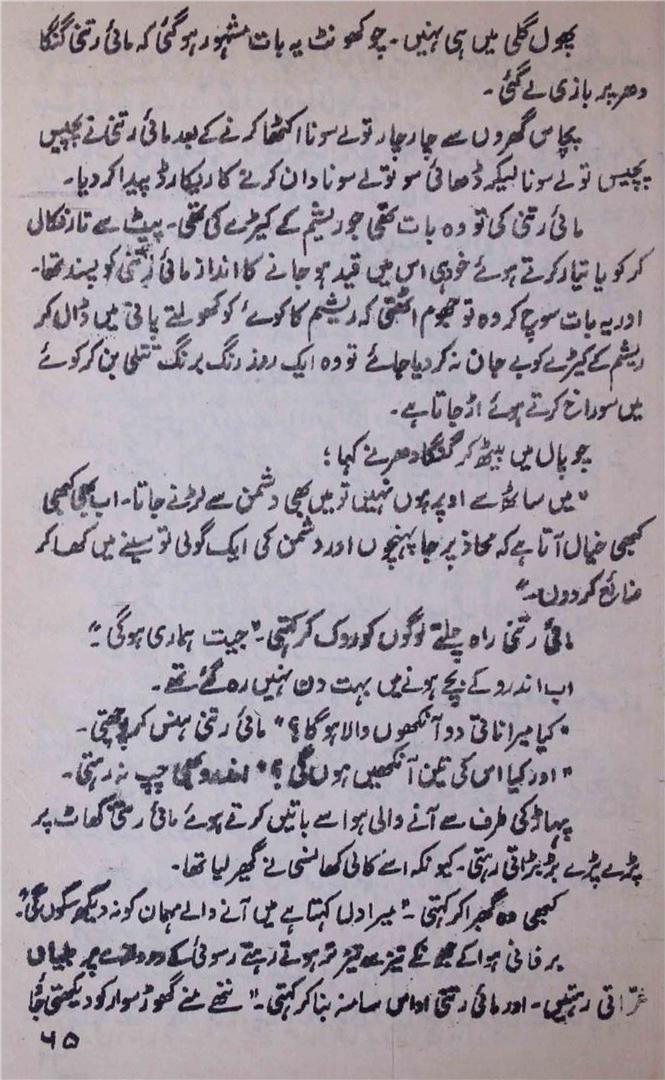 پھول گلی میں ہی نہیں۔ چوکھونٹ یہ بات مشہور ہو گئی کہ مائی رتنی گنگا
دھر پر بازی لے گئی۔
پچاس گھروں سے چار چار تولے سونا اکٹھا کرنے کے بعد مائی رتنی نے پچیس
پچیس تولے سونا لیکر ڈھائی سو تولے سونا دان کرنے کا ریکارڈ پیدا کر دیا۔
مائی رتنی کی تو وہ بات تھی جو ریشم کے کیڑے کی تھی۔ پیٹ سے تار نکال
کر کویا تیار کرتے ہوئے خود ہی اس میں قید ہو جانے کا انداز مائی رتنی کو پسند تھا۔
اور یہ بات سوچ کر وہ تو جھوم اٹھتی کہ ریشم کا کوئے کو کھولتے پانی میں ڈال کر
ریشم کے کیڑے کو بے جان نہ کر دیا جائے تو وہ ایک روز رنگ برنگ تتلی بن کر کوئے
میں سوراخ کرتے ہوئے اڑ جاتا ہے۔
چوپال میں بیٹھ کر گنگا دھر نے کہا؛
"میں ساٹھ سے اوپر ہوں نہیں تو میں بھی دشمن سے لڑنے جاتا۔ اب بھی کبھی
کبھی خیال آتا ہے کہ محاذ پر جا پہنچوں اور دشمن کی ایک گولی تو سینے میں کھا کر
ضائع کر دوں۔"
مائی رتنی راہ چلتے لوگوں کو روک کر کہتی۔ "جیت ہماری ہو گی۔"
اب اندرو کے بچے ہونے میں بہت دن نہیں رہ گئے تھے۔
"کیا میرا ناتی دو آنکھوں والا ہو گا؟" مائی رتنی ہنس کر پوچھتی۔
"اور کیا اس کی تین آنکھیں ہوں گی؟" اندرو بھی چپ نہ رہتی۔
پہاڑ کی طرف سے آنے والی ہوا سے باتیں کرتے ہوئے مائی رتنی کھاٹ پر
پڑے پڑے بڑبڑاتی رہتی۔ کیونکہ اسے کالی کھانسی نے گھیر لیا تھا۔
کبھی وہ گھبرا کر کہتی۔ "میرا دل کہتا ہے میں آنے والے مہمان کو نہ دیکھ سکوں گی"۔
برفانی ہوا کے جھونکے تیز سے تیز تر ہوتے رہتے رسوئی کے دروازے پر بلیاں
غرّاتی رہتیں۔ اور مائی رتنی اداس سا منہ بنا کر کہتی۔ "ننھے منے گھوڑ سوار کو دیکھتی جا
۶۵